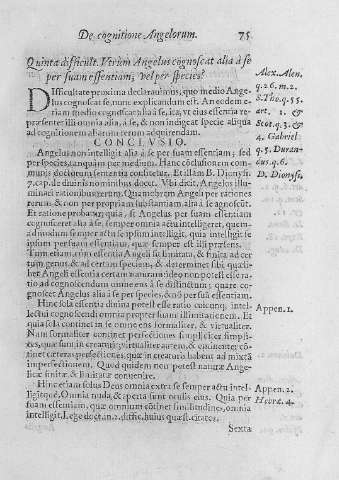 De cognitione Angelorum. 75
Quinta difficult. Vtrùm Angelus cognoscat alia à se
per suam essentiam, vel per species?
Alex. Alen.
q. 26. m. 2.
S. Tho. q. 55.
art. 1. &
Scot. q. 3. &
4. Gabriel
q. 5. Duran-
dus. q. 6.
D. Dionys.
Difficultate proxima declarauimus, quo medio Ange-
lus cognoscat se, nunc explicandum est. An eodem e-
tiam medio cognoscat alia à se, ita, vt eius essentia re-
præsentet illi omnia alia à se, & non indigeat specie aliqua
ad cognitionem aliarum rerum acquirendam.
CONCLVSIO.
Angelus non intelligit alia à se per suam essentiam; sed
per species, tamquam per medium. Hanc cõclusionem com-
munis doctorum sententia confitetur. Et illam B. Dionys.
7. cap. de diuinis nominibus docet. Vbi dicit, Angelos illu-
minari rationibus entium. Quemobrem Angelus per rationes
rerum, & non per propriam substantiam, alia à se agnoscũt.
Et ratione probatur, quia, si Angelus per suam essentiam
cognosceret alia à se, semper omnia actu intelligeret, quem-
admodum se ipsum semper actu intelligit, quia intelligit se
ipsum per suam essentiam, quæ semper est illi præsens.
Tum etiam, cùm essentia Angeli sit limitata, & finita ad cer-
tum genus, & ad certam speciem, & determinet sibi quælibet
Angeli essentia certam naturam ideo non potest esse ra-
tio ad cognoscendum omne ens à se distinctum; quare co-
gnoscet Angelus alia à se per species, & nõ per suã essentiam.
Hinc sola essentia diuina potest esse ratio cuicumq. intel-
lectui cognoscendi omnia propter suam illimitationem. Et
quia sola continet in se omne ens formaliter, & virtualiter.
Nam formaliter continet perfectiones simpliciter simpli-
ces, quæ sunt in creaturis; virtualiter autem, & eminenter cõ-
tinet cæteras perfectiones, quæ in creaturis habent admixtã
imperfectionem. Quod quidem non potest naturæ Ange-
licæ finitæ, & limitatæ conuenire.
Appen. 1.
Hinc etiam solus Deus omnia extra se semper actu intel-
ligit, Omnia nuda, & aperta sunt oculis eius. Quia per
suam essentiam, quæ omnium cõtinet similitudines, omnia
intelligit. Lege doct. an 2. distic. huius quæst. citatos.
Appen. 2.
Hebræ. 4.
Sexta